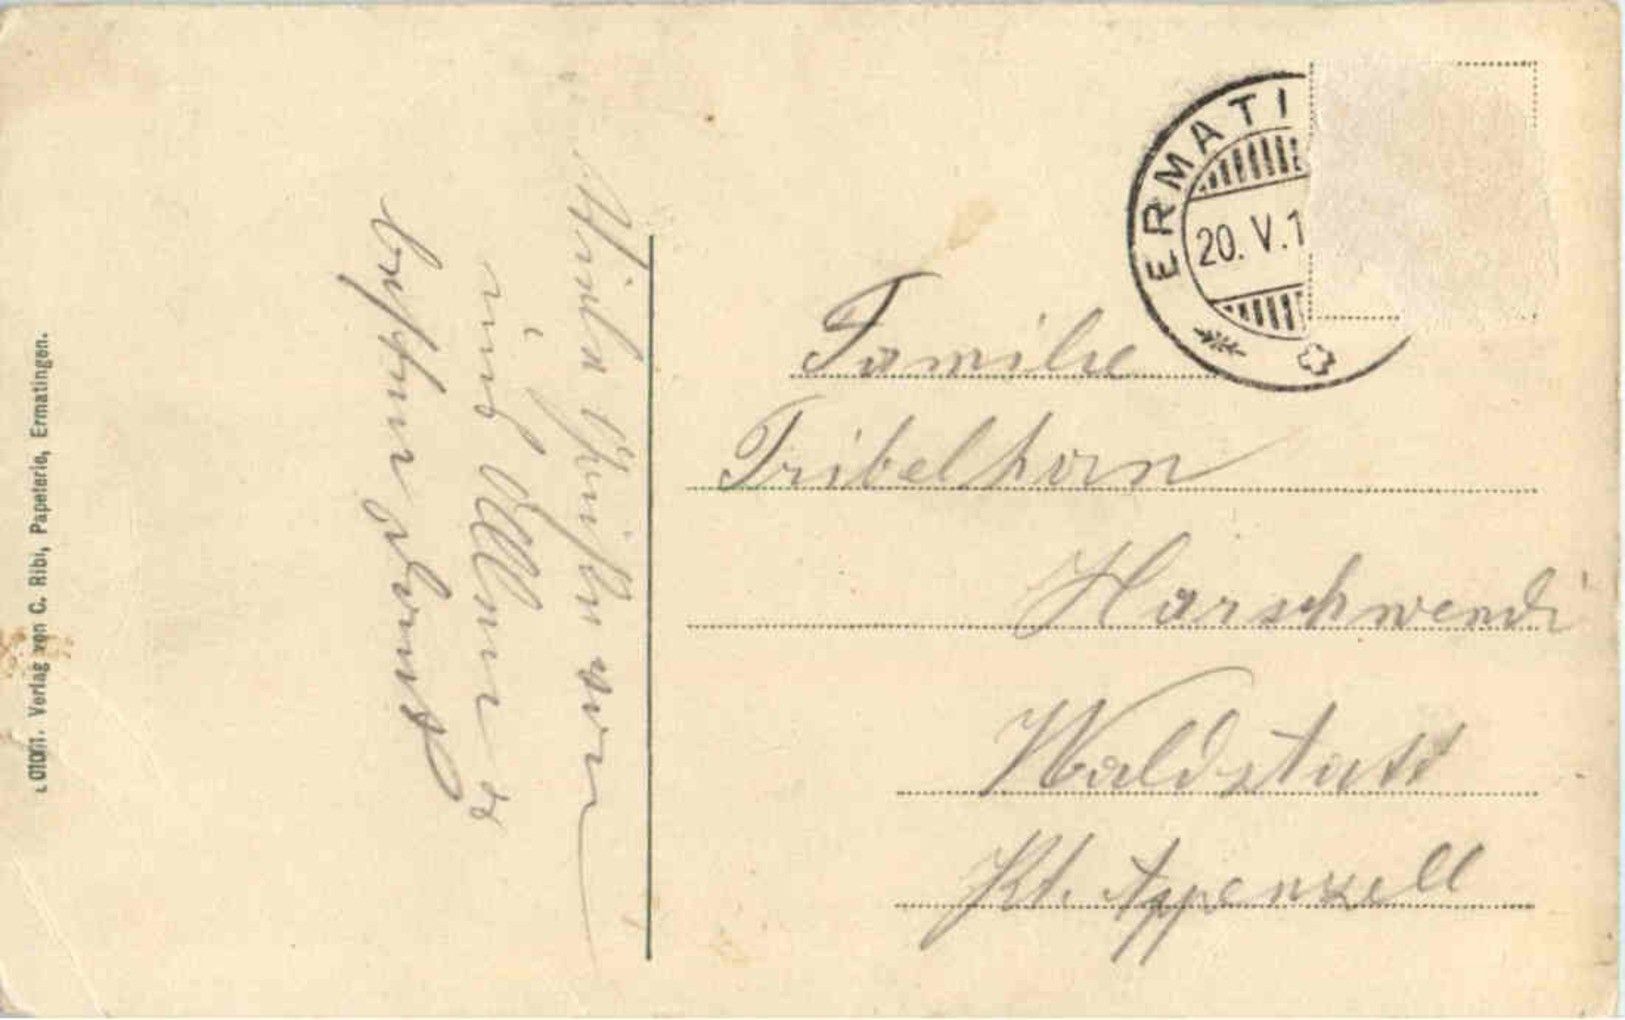 ERMATI
20. V. 1
Familie
Tribelhorn
Harschwendi
Waldstatt
Kt. Appenzell
Viele Grüße von
uns Allen
Verlag von C. Ribi, Papeterie, Ermatingen.